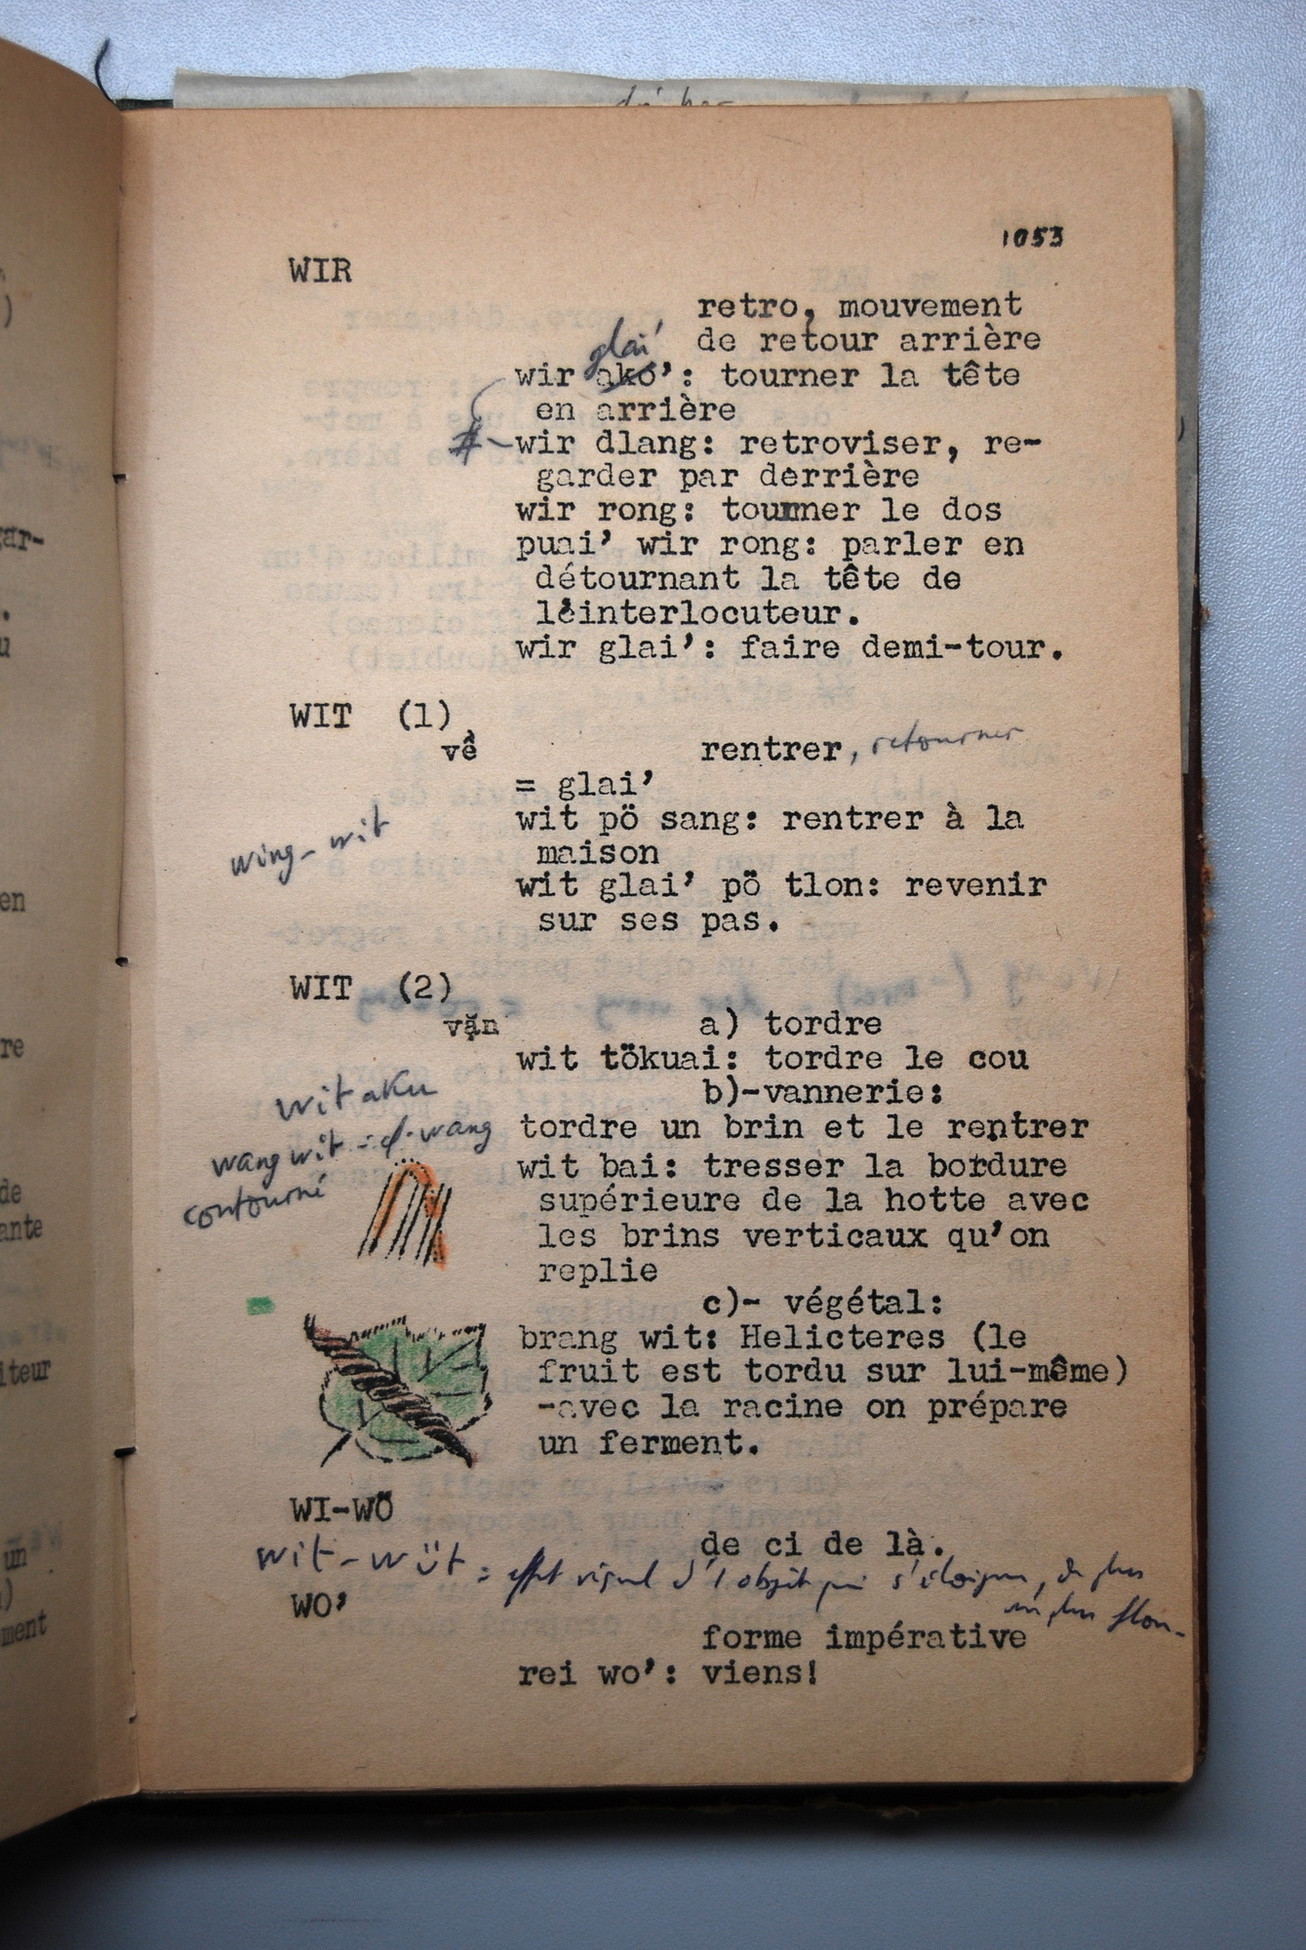 1053
WIR
retro, mouvement
de retour arrière
glai'
wir ako': tourner la tête
en arrière
wir dlang: retroviser, re-
garder par derrière
wir rong: tourner le dos
puai' wir rong: parler en
détournant la tête de
l'interlocuteur.
wir glai': faire demi-tour.
WIT (1)
về rentrer, retourner
= glai'
wit pö sang: rentrer à la
wing-wit
maison
wit glai' pö tlon: revenir
sur ses pas.
WIT (2)
vặn a) tordre
wit tökuai: tordre le cou
wit aku
b)-vannerie:
wang wit = d. wang
tordre un brin et le rentrer
contourné
wit bai: tresser la bordure
supérieure de la hotte avec
les brins verticaux qu'on
replie
c)- végétal:
brang wit: Helicteres (le
fruit est tordu sur lui-même)
-avec la racine on prépare
un ferment.
WI-WÖ
de ci de là.
wit-wüt = effet visuel d'1 objet qui s'éloigne, de plus
en plus flou.
WO'
forme impérative
rei wo': viens!